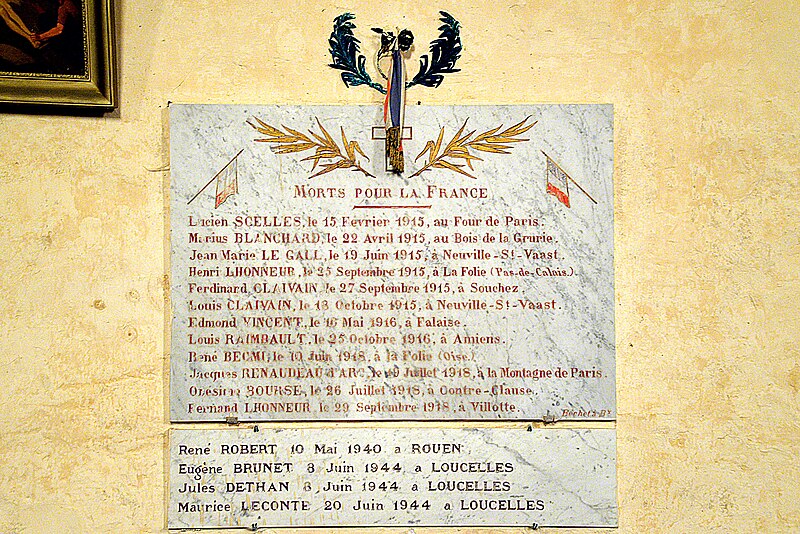 MORTS POUR LA FRANCE
Lucien SCELLES, le 15 Février 1915, au Four de Paris.
Marius BLANCHARD, le 22 Avril 1915, au Bois de la Grurie.
Jean Marie LE GALL, le 19 Juin 1915, à Neuville-St-Vaast.
Henri LHONNEUR, le 25 Septembre 1915, à La Folie (Pas-de-Calais).
Ferdinand CLAIVAIN, le 27 Septembre 1915, à Souchez.
Louis CLAIVAIN, le 18 Octobre 1915, à Neuville-St-Vaast.
Edmond VINCENT, le 16 Mai 1916, à Falaise.
Louis RAIMBAULT, le 25 Octobre 1916, à Amiens.
René BECMI, le 10 Juin 1918, à la Folie (Oise).
Jacques RENAUDEAU d'ARC, le Juillet 1918, à la Montagne de Paris.
Onésime BOURSE, le 26 Juillet 1918, à Contre-Clause.
Fernand LHONNEUR, le 29 Septembre 1918, à Villotte.
René ROBERT 10 Mai 1940 a ROUEN
Eugène BRUNET 8 Juin 1944 a LOUCELLES
Jules DETHAN Juin 1944 a LOUCELLES
Maurice LECONTE 20 Juin 1944 a LOUCELLES